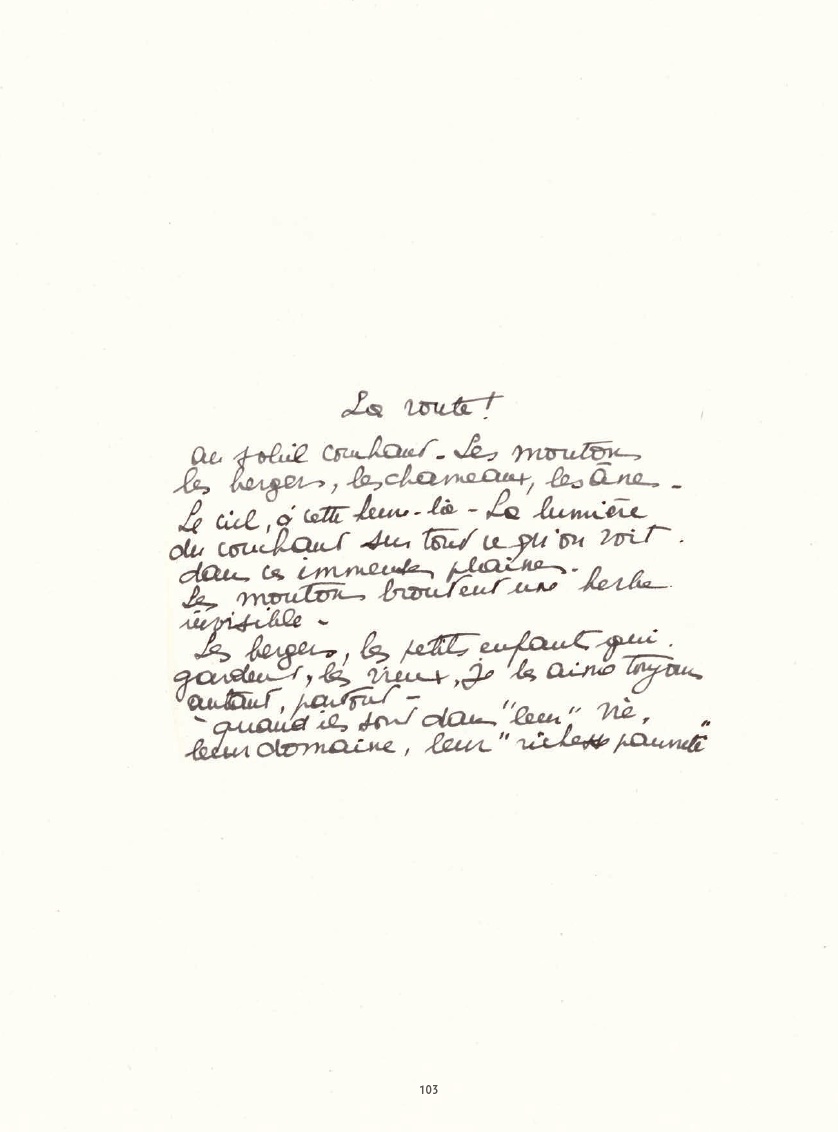 La route!
au soleil couchant - Les moutons
les bergers, les chameaux, les ânes -
Le ciel, à cette heure-là - La lumière
du couchant sur tout ce qu'on voit.
dans ces immenses plaines -
Les moutons broutent une herbe
invisible -
Les bergers, les petits enfants qui
gardent, les vieux, je les aime toujours
autant, partout -
- quand ils sont dans "leur" vie,
leur domaine, leur "richesse pauvreté"
103